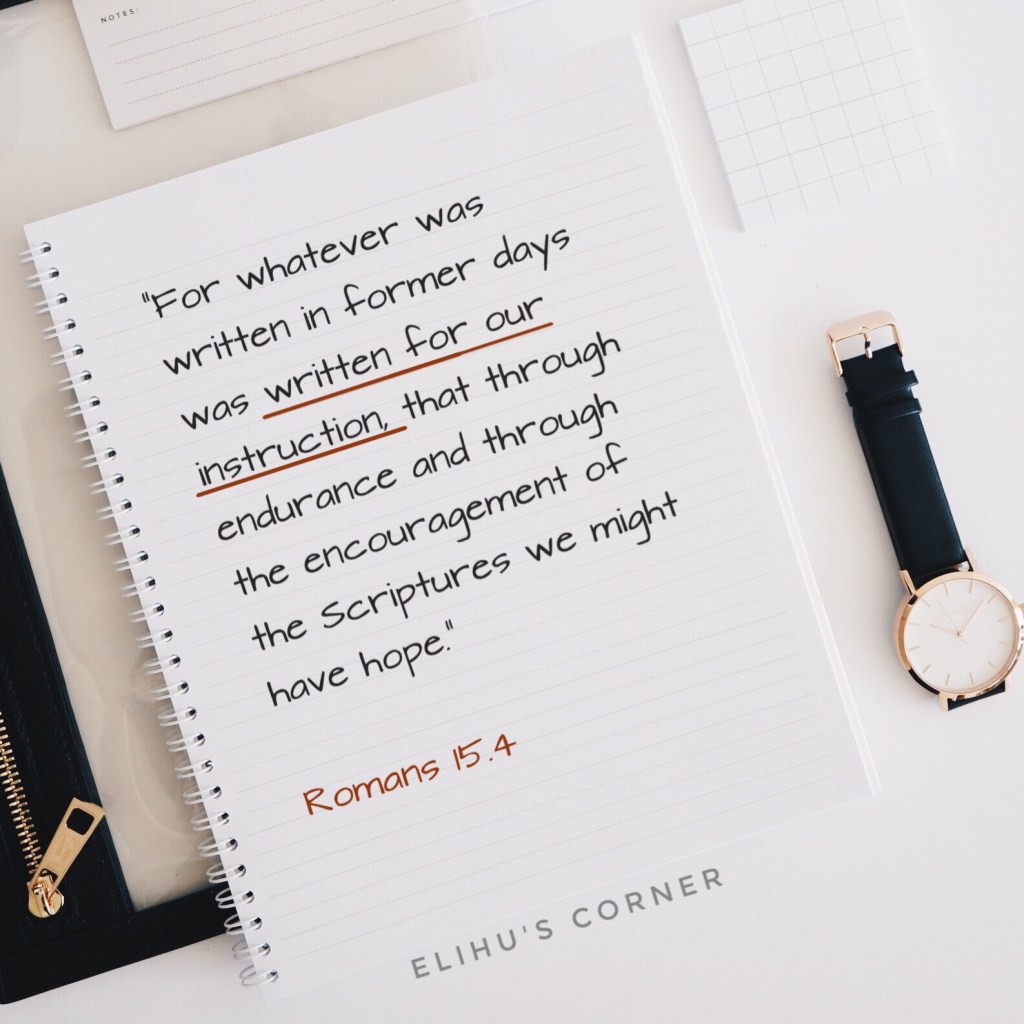 NOTES:
"For whatever was
written in former days
was written for our
instruction, that through
endurance and through
the encouragement of
the Scriptures we might
have hope."
Romans 15.4
ELIHU'S CORNER